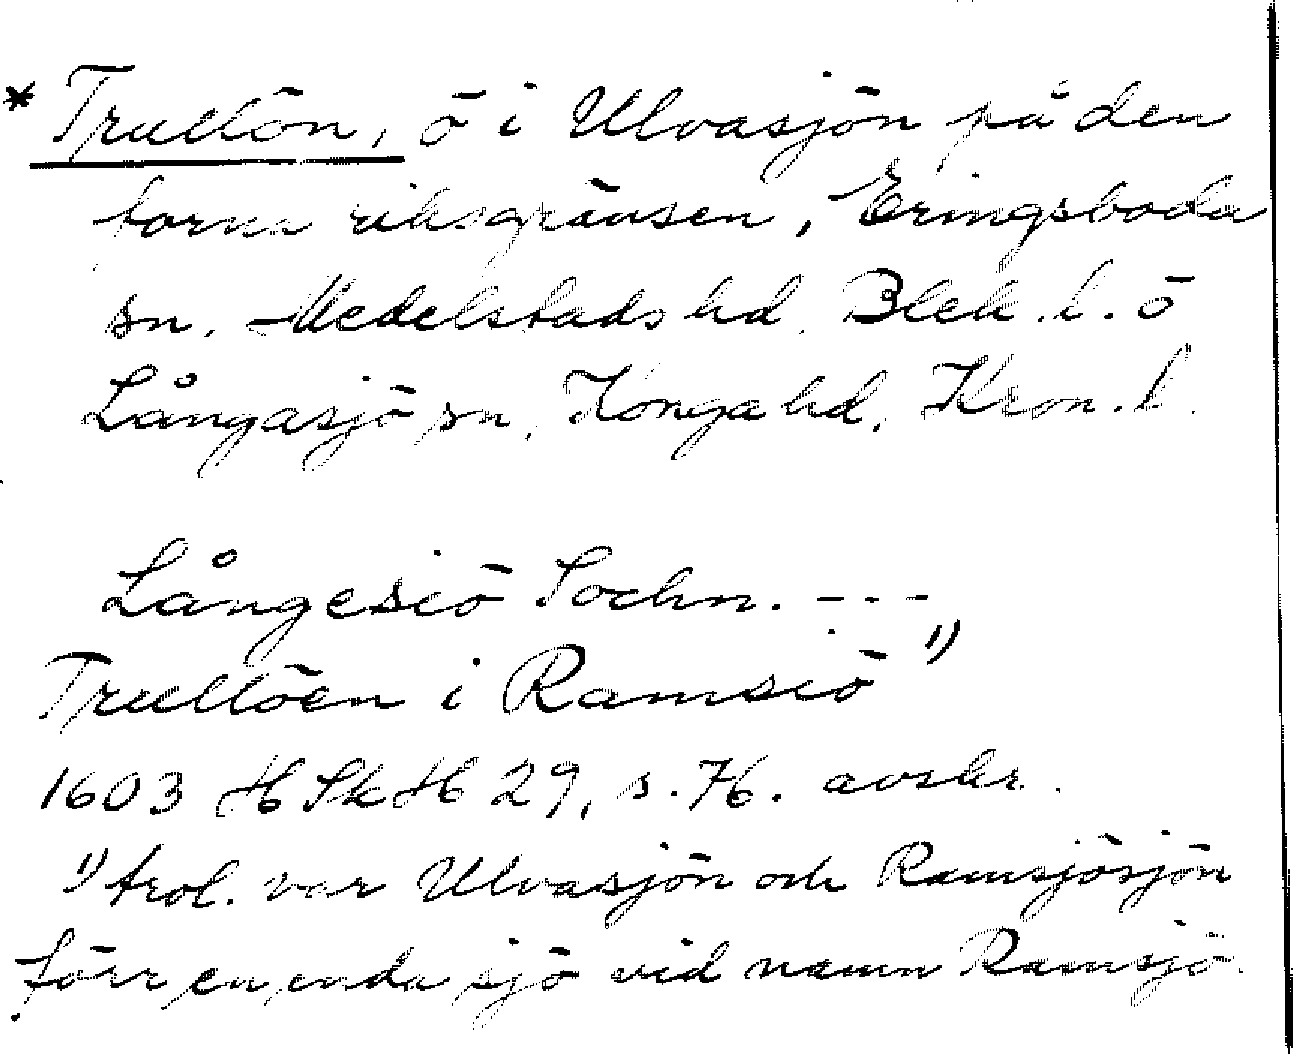 * Trullön, ö i Ulvasjön på den
forna riksgränsen, Eringsboda
sn. Medelstads hd. Blek. l. ö
Långasjö sn, Konga hd, Kron. l.
Långesiö Sochn. ---
Trullöen i Ramsiö 1)
1603 HSkH 29, s. 76. avskr.
1) trol. var Ulvasjön och Ramsjösjön
förr en enda sjö vid namn Ramsjö.